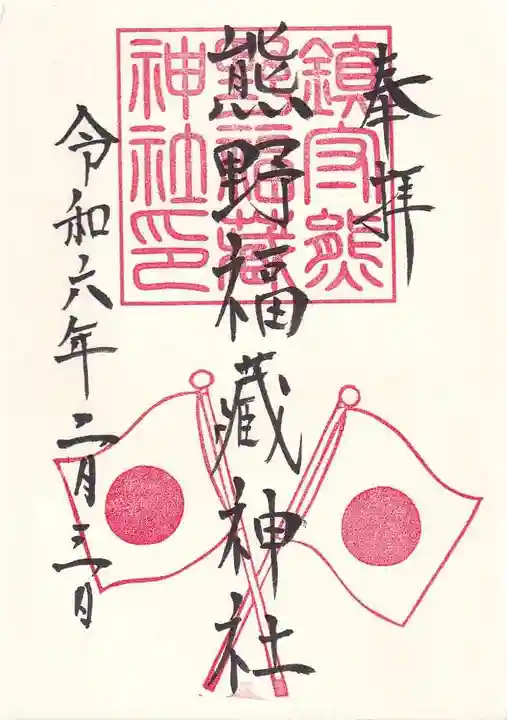 奉拝
熊野福蔵神社
令和六年二月三日
鎮守熊
野福蔵
神社印